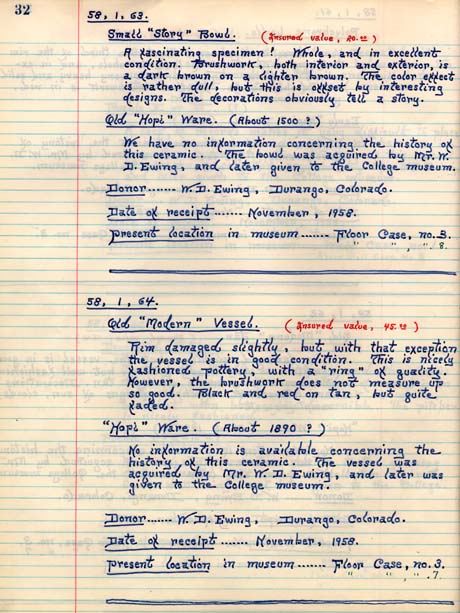 32
58, 1, 63.
Small "Story" Bowl. (Insured value, 20.00)
A fascinating specimen! Whole, and in excellent
condition. Brushwork, both interior and exterior, is
a dark brown on a lighter brown. The color effect
is rather dull, but this is offset by interesting
designs. The decorations obviously tell a story.
Old "Hopi" Ware. (About 1500 ?)
We have no information concerning the history of
this ceramic. The bowl was acquired by Mr. W.
D. Ewing, and later given to the College museum.
Donor ....... W. D. Ewing, Durango, Colorado.
Date of receipt ....... November, 1958.
Present location in museum ....... Floor Case, no. 3.
" " , " , 8.
58, 1, 64.
Old "Modern" Vessel. (Insured value, 45.00)
Rim damaged slightly, but with that exception
the vessel is in good condition. This is nicely
fashioned pottery, with a "ring" of quality.
However, the brushwork does not measure up
so good. Black and red on tan, but quite
faded.
"Hopi" Ware. (About 1890 ?)
No information is available concerning the
history of this ceramic. The vessel was
acquired by Mr. W. D. Ewing, and later was
given to the College museum.
Donor ....... W. D. Ewing, Durango, Colorado.
Date of receipt ....... November, 1958.
Present location in museum ....... Floor Case, no. 3.
" " , " . 7.